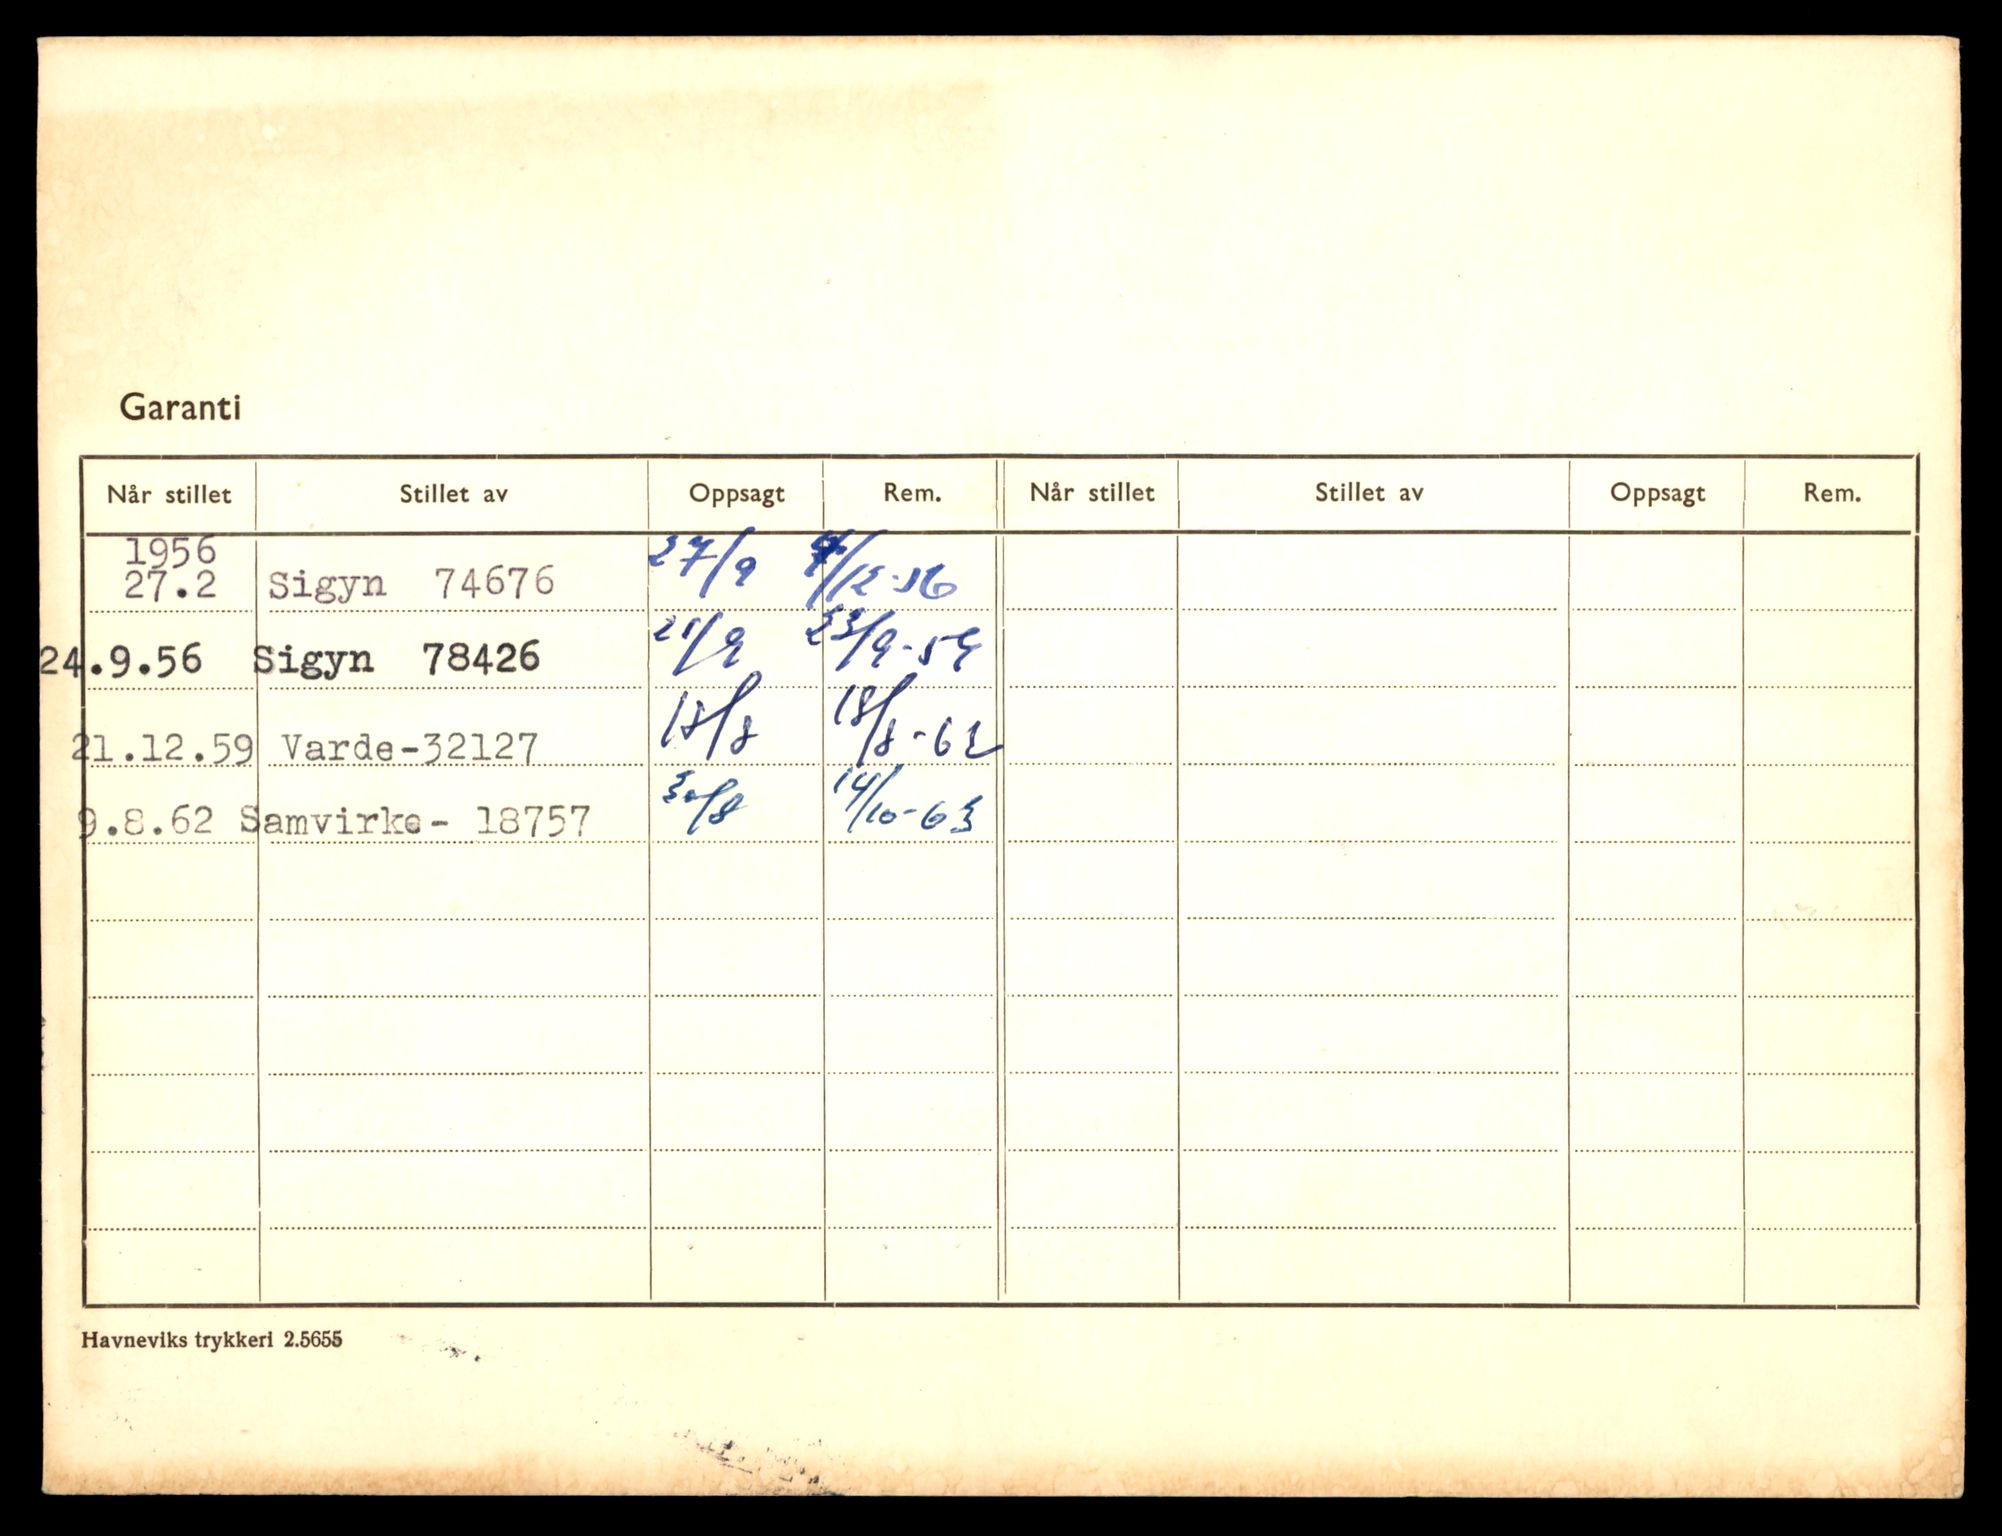 Garanti
Når stillet Stillet av Oppsagt Rem. Når stillet Stillet av Oppsagt Rem.
1956
27.2 Sigyn 74676 27/9 /12-56
24.9.56 Sigyn 78426 21/9 23/9-59
21.12.59 Varde-32127 18/8 18/8-62
9.8.62 Samvirke- 18757 30/8 14/10-63
Havneviks trykkeri 2.5655